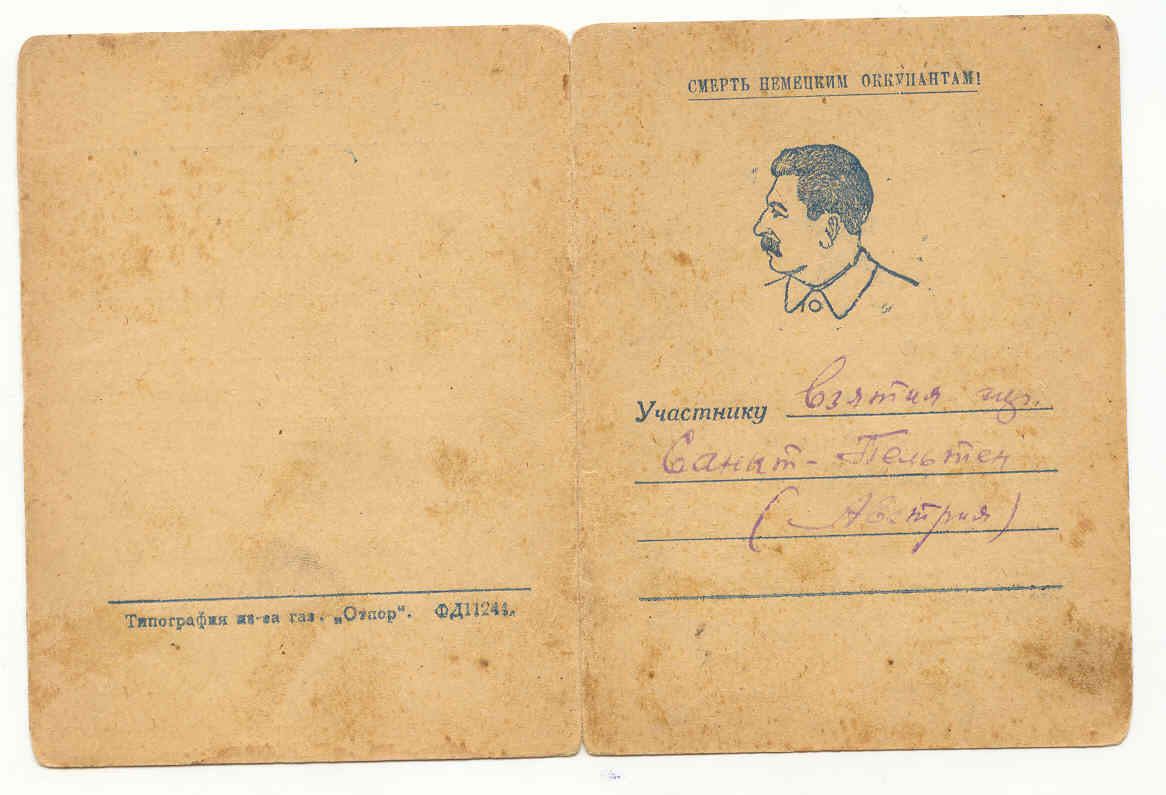 Типография из-ва газ. „Отпор“. ФД11244.
СМЕРТЬ НЕМЕЦКИМ ОККУПАНТАМ!
Участнику Взятия
Санкт-Пельтен
(Австрия)